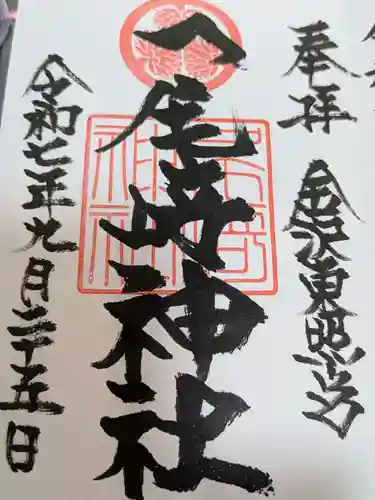 奉拝
金沢東照宮
尾﨑神社
令和七年九月二十五日